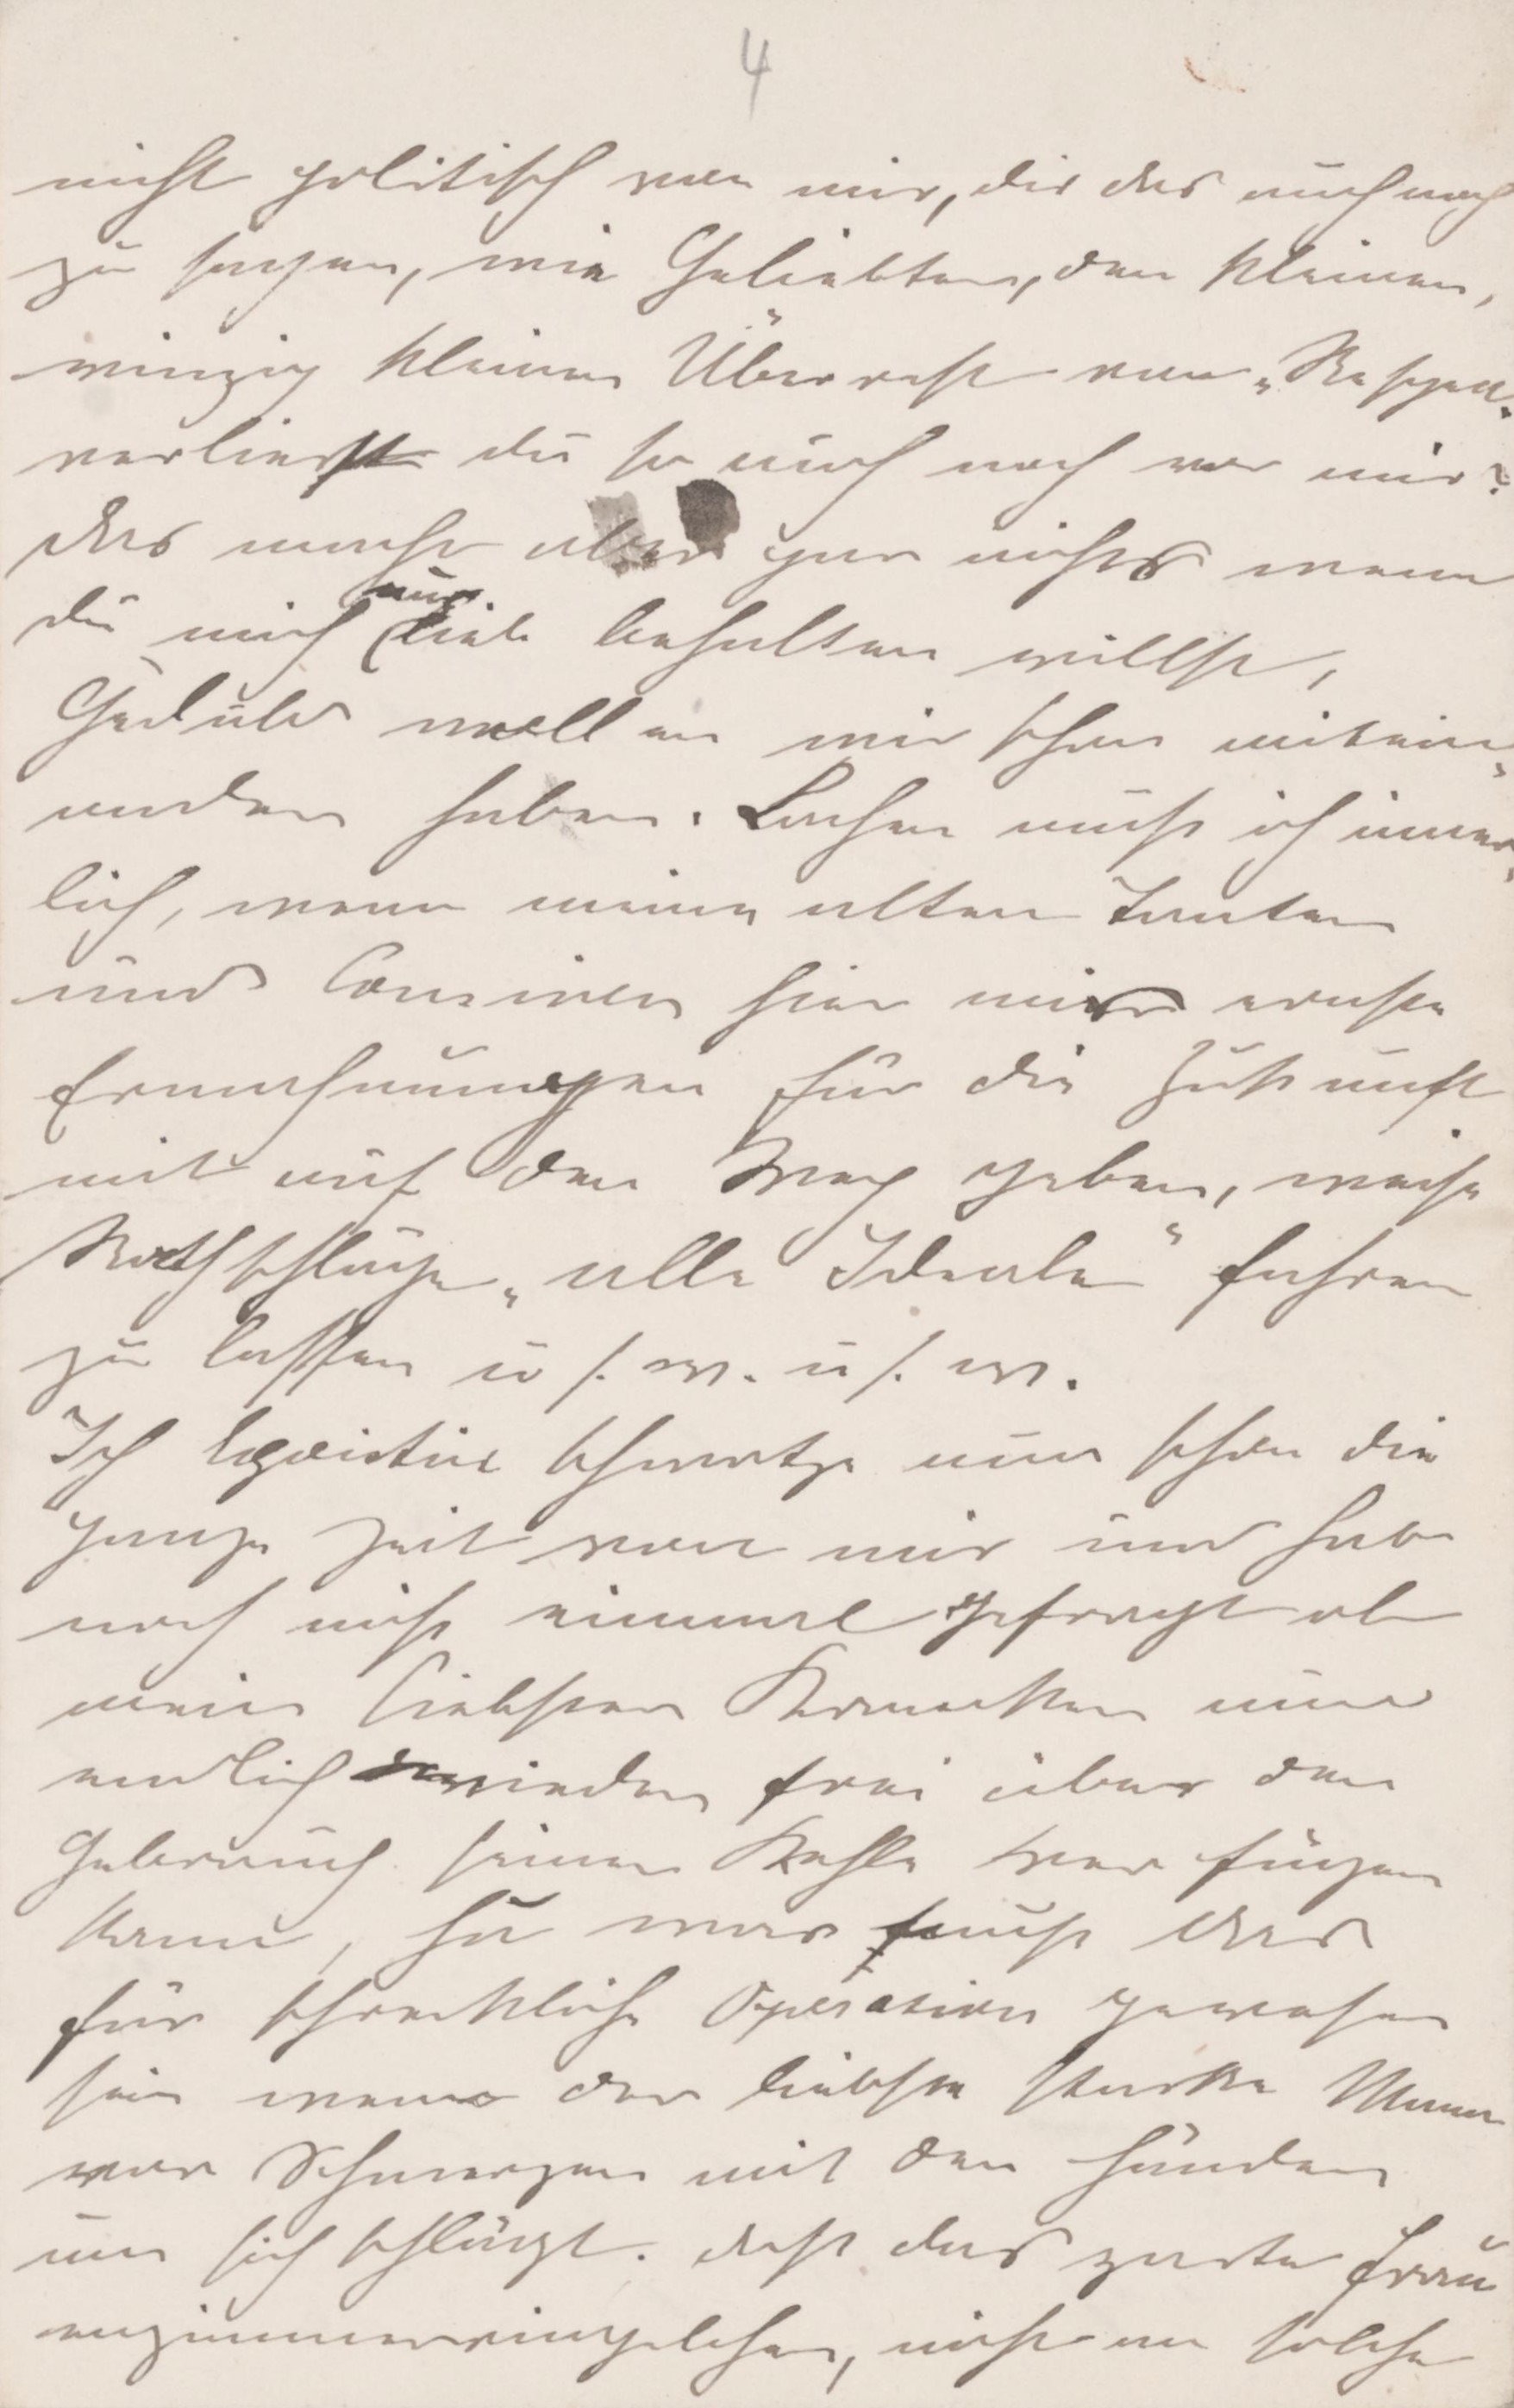 4
nicht politisch von mir, dir das auch noch
zu sagen, wie Geliebter, den kleinen,
winzig kleinen Überrest von „Respect"
verlierst du so auch noch vor mir?
das macht aber gar nichts wenn
du mich nur lieb behalten willst,
Geduld wollen wir schon mitein-
ander haben. Lachen muß ich inner-
lich, wenn meine alten Tanten
und Cousinen hier mir ernste
Ermahnungen für die Zukunft
mit auf den Weg geben, weise
Rathschläge „alle Ideale" fahren
zu lassen u. s. w. u. s. w.
Ich Egoistin schwatze nun schon die
ganze Zeit von mir und habe
noch nicht einmal gefragt ob
mein liebster Kranker nun
endlich wieder frei über den
Gebrauch seiner Kehle verfügen
kann, hu was muß das
für schreckliche Operation gewesen
sein wenn der liebste starke Mann
vor Schmerzen mit den Händen
um sich schlägt. daß das zarte Frau
enzimmer, nicht an solche